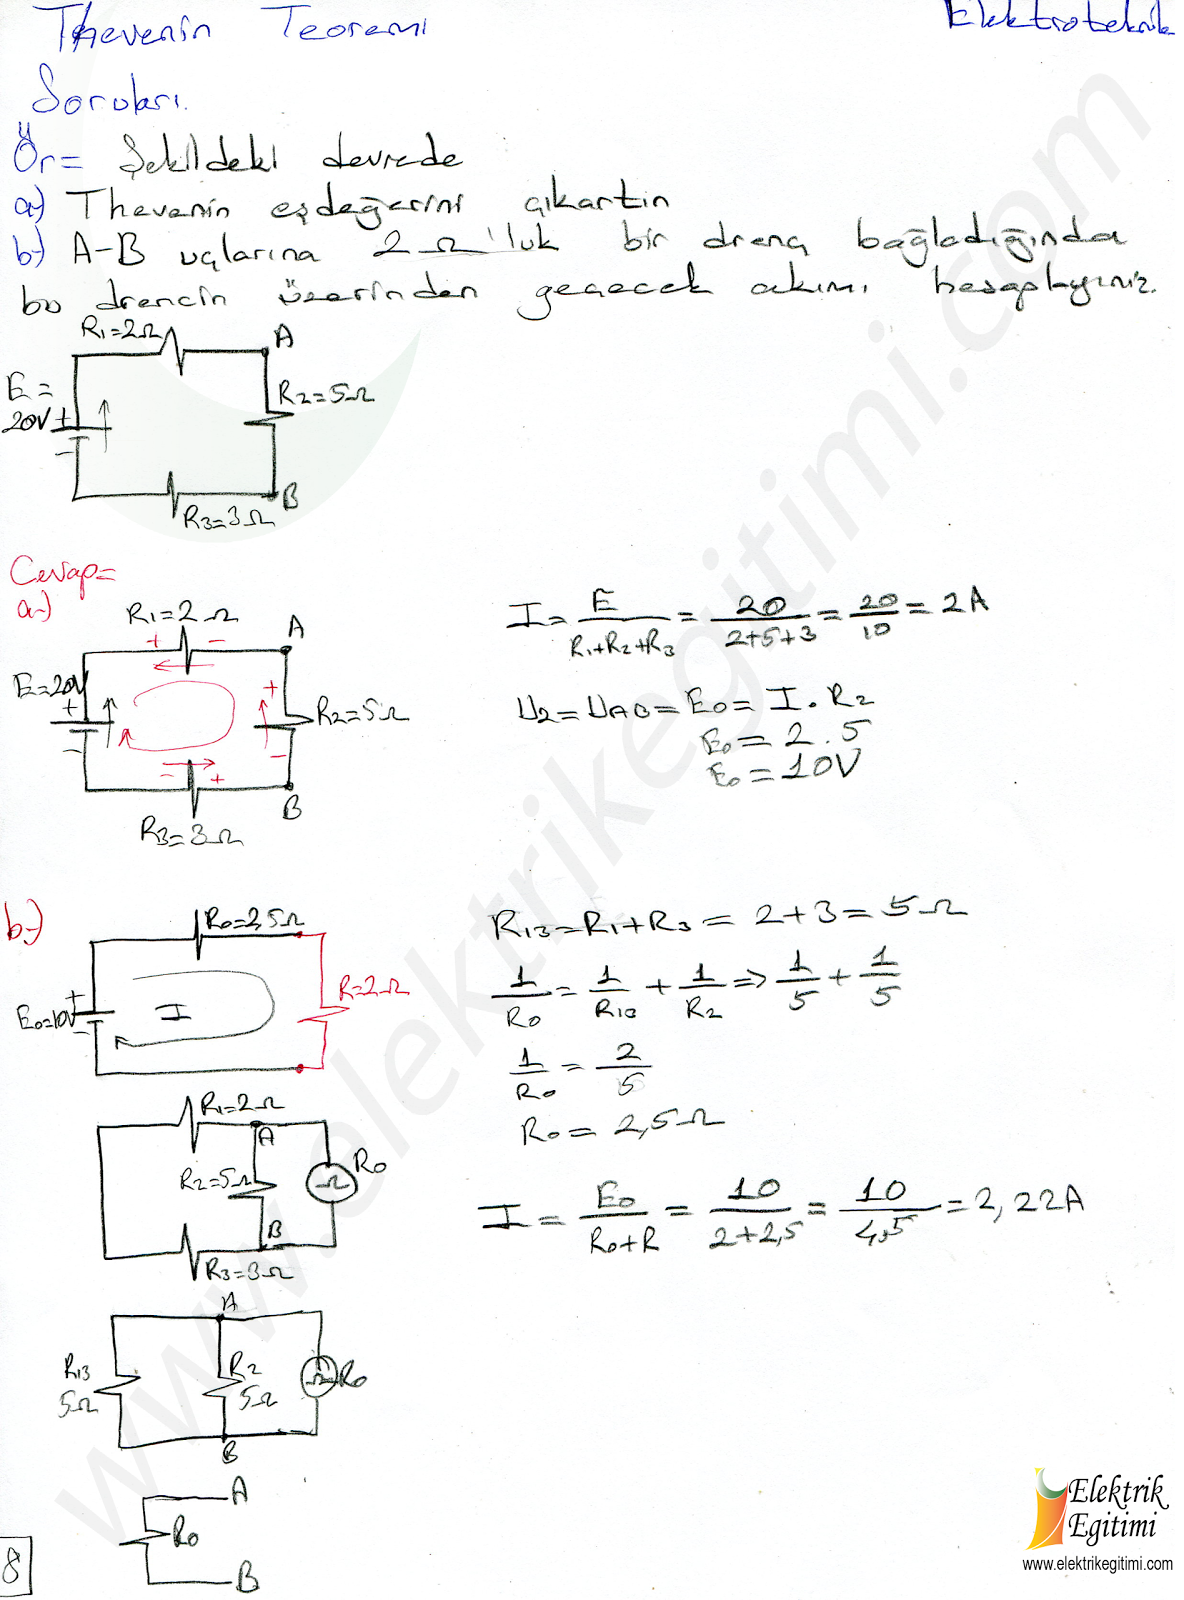 Thevenin Teoremi
Elektroteknik
Soruları.
Ör= Şekildeki devrede
a) Thevenin eşdeğerini çıkartın
b) A-B uçlarına 2Ω'luk bir direnç bağladığında
bu direncin üzerinden geçecek akımı hesaplayınız.
R1=2Ω
A
E=
20V
+
-
R2=5Ω
B
R3=3Ω
Cevap=
a-)
R1=2Ω
+ -
A
E=20V
+
-
+
R2=5Ω
-
- +
B
R3=3Ω
I = E/(R1+R2+R3) = 20/(2+5+3) = 20/10 = 2A
U2 = UAB = E0 = I . R2
E0 = 2 . 5
E0 = 10V
b-)
R0=2,5Ω
E0=10V
+
-
I
R=2Ω
R13=R1+R3 = 2+3 = 5Ω
1/R0 = 1/R13 + 1/R2 ⇒ 1/5 + 1/5
1/R0 = 2/5
R0 = 2,5Ω
I = E0/(R0+R) = 10/(2+2,5) = 10/4,5 = 2,22A
R1=2Ω
A
R2=5Ω
Ω
R0
B
R3=3Ω
A
R13
5Ω
R2
5Ω
Ω
R0
B
A
R0
B
8
Elektrik
Egitimi
www.elektrikegitimi.com
www.elektrikegitimi.com